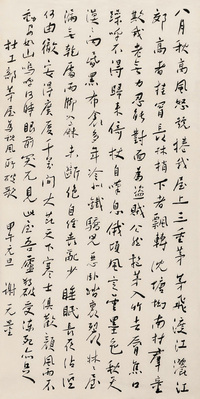 八月秋高風怒號捲我屋上三重茅茅飛渡江灑江
郊高者挂罥長林梢下者飄轉沈塘坳南村群童
欺我老無力忍能對面為盜賊公然抱茅入竹去脣焦口
燥呼不得歸來倚杖自嘆息俄頃風定雲墨色秋天
漠漠向昏黑布衾多年冷似鐵驕兒惡卧踏裏裂牀牀屋
漏無乾處雨脚如麻未斷絕自經喪亂少睡眠長夜沾溼
何由徹安得廣廈千萬間大庇天下寒士俱歡顏風雨不
動安如山嗚呼何時眼前突兀見此屋吾廬獨破受凍死亦足
杜工部茅屋為秋風所破歌 甲午元旦 謝无量